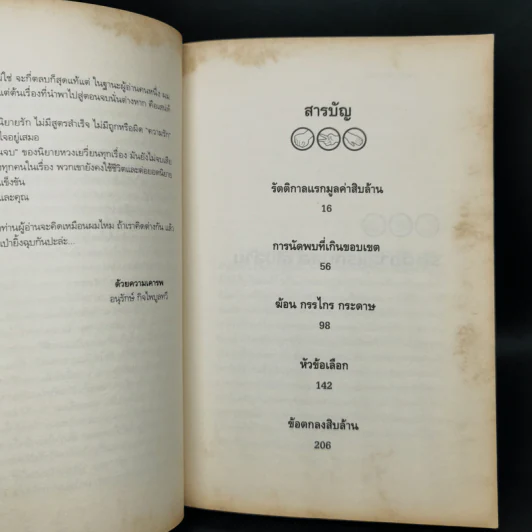 ไม่ใช่ จะกี่ตลบก็สุดแท้แต่ ในฐานะผู้อ่านคนหนึ่ง ผม
แต่ต้นเรื่องที่นำพาไปสู่ตอนจบนั่นต่างหาก คือเสน่ห์
นิยายรัก ไม่มีสูตรสำเร็จ ไม่มีถูกหรือผิด "ความรัก"
ใจอยู่เสมอ
นจบ" ของนิยายหวงเยวี่ยนทุกเรื่อง มันยังไม่จบเสีย
ทุกคนในเรื่อง พวกเขายังคงใช้ชีวิตและต่อยอดนิยาย
แข็งขัน
และคุณ
ท่านผู้อ่านจะคิดเหมือนผมไหม ถ้าเราคิดต่างกัน แล้ว
เป่ายิ้งฉุบกันปะล่ะ...
ด้วยความเคารพ
อนุรักษ์ กิจไพบูลทวี
สารบัญ
รัตติกาลแรกมูลค่าสิบล้าน
16
การนัดพบที่เกินขอบเขต
56
ฆ้อน กรรไกร กระดาษ
98
หัวข้อเลือก
142
ข้อตกลงสิบล้าน
206